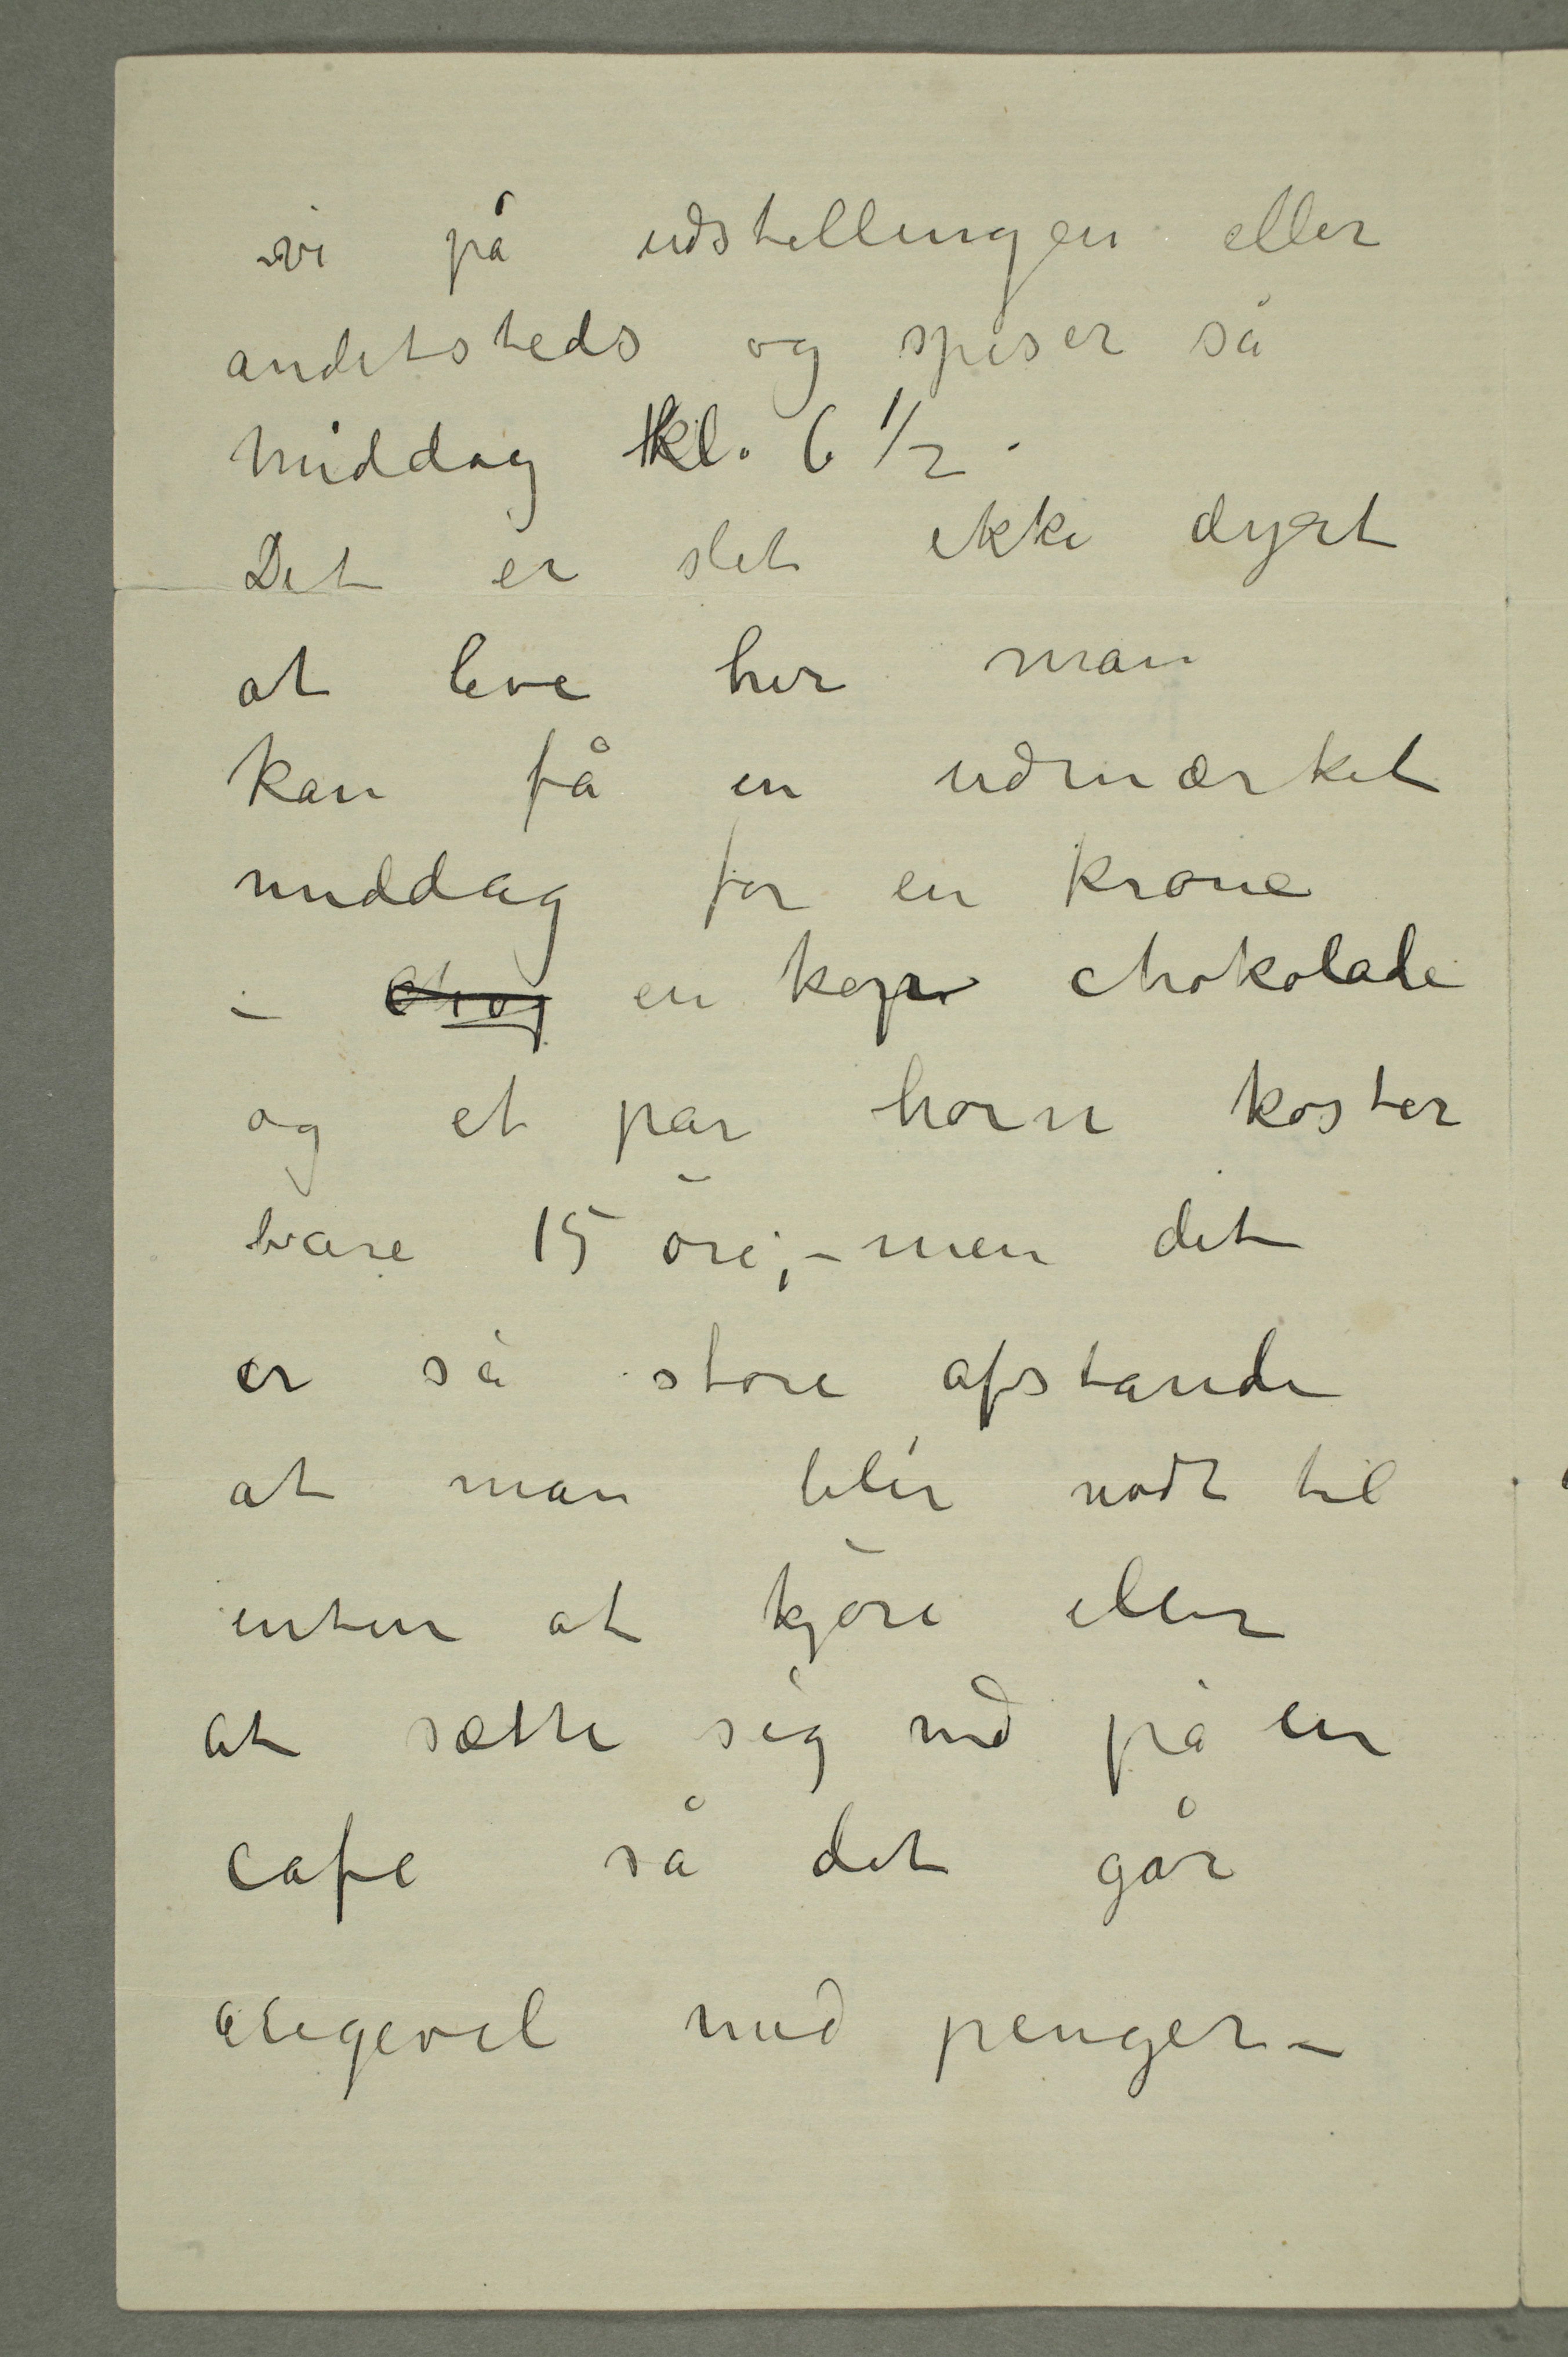 vi på udstellingen eller
andetsteds og spiser så
middag kl. 6 1/2.
Det er slet ikke dyrt
at leve her man
kan få en udmærket
middag for en krone
– en kop chokolade
og et par horn koster
bare 15 öre; – men det
er så store afstande
at man blir nödt til
enten at kjöre eller
at sætte sig ned på en
cafe så det går
aligevel med penger –